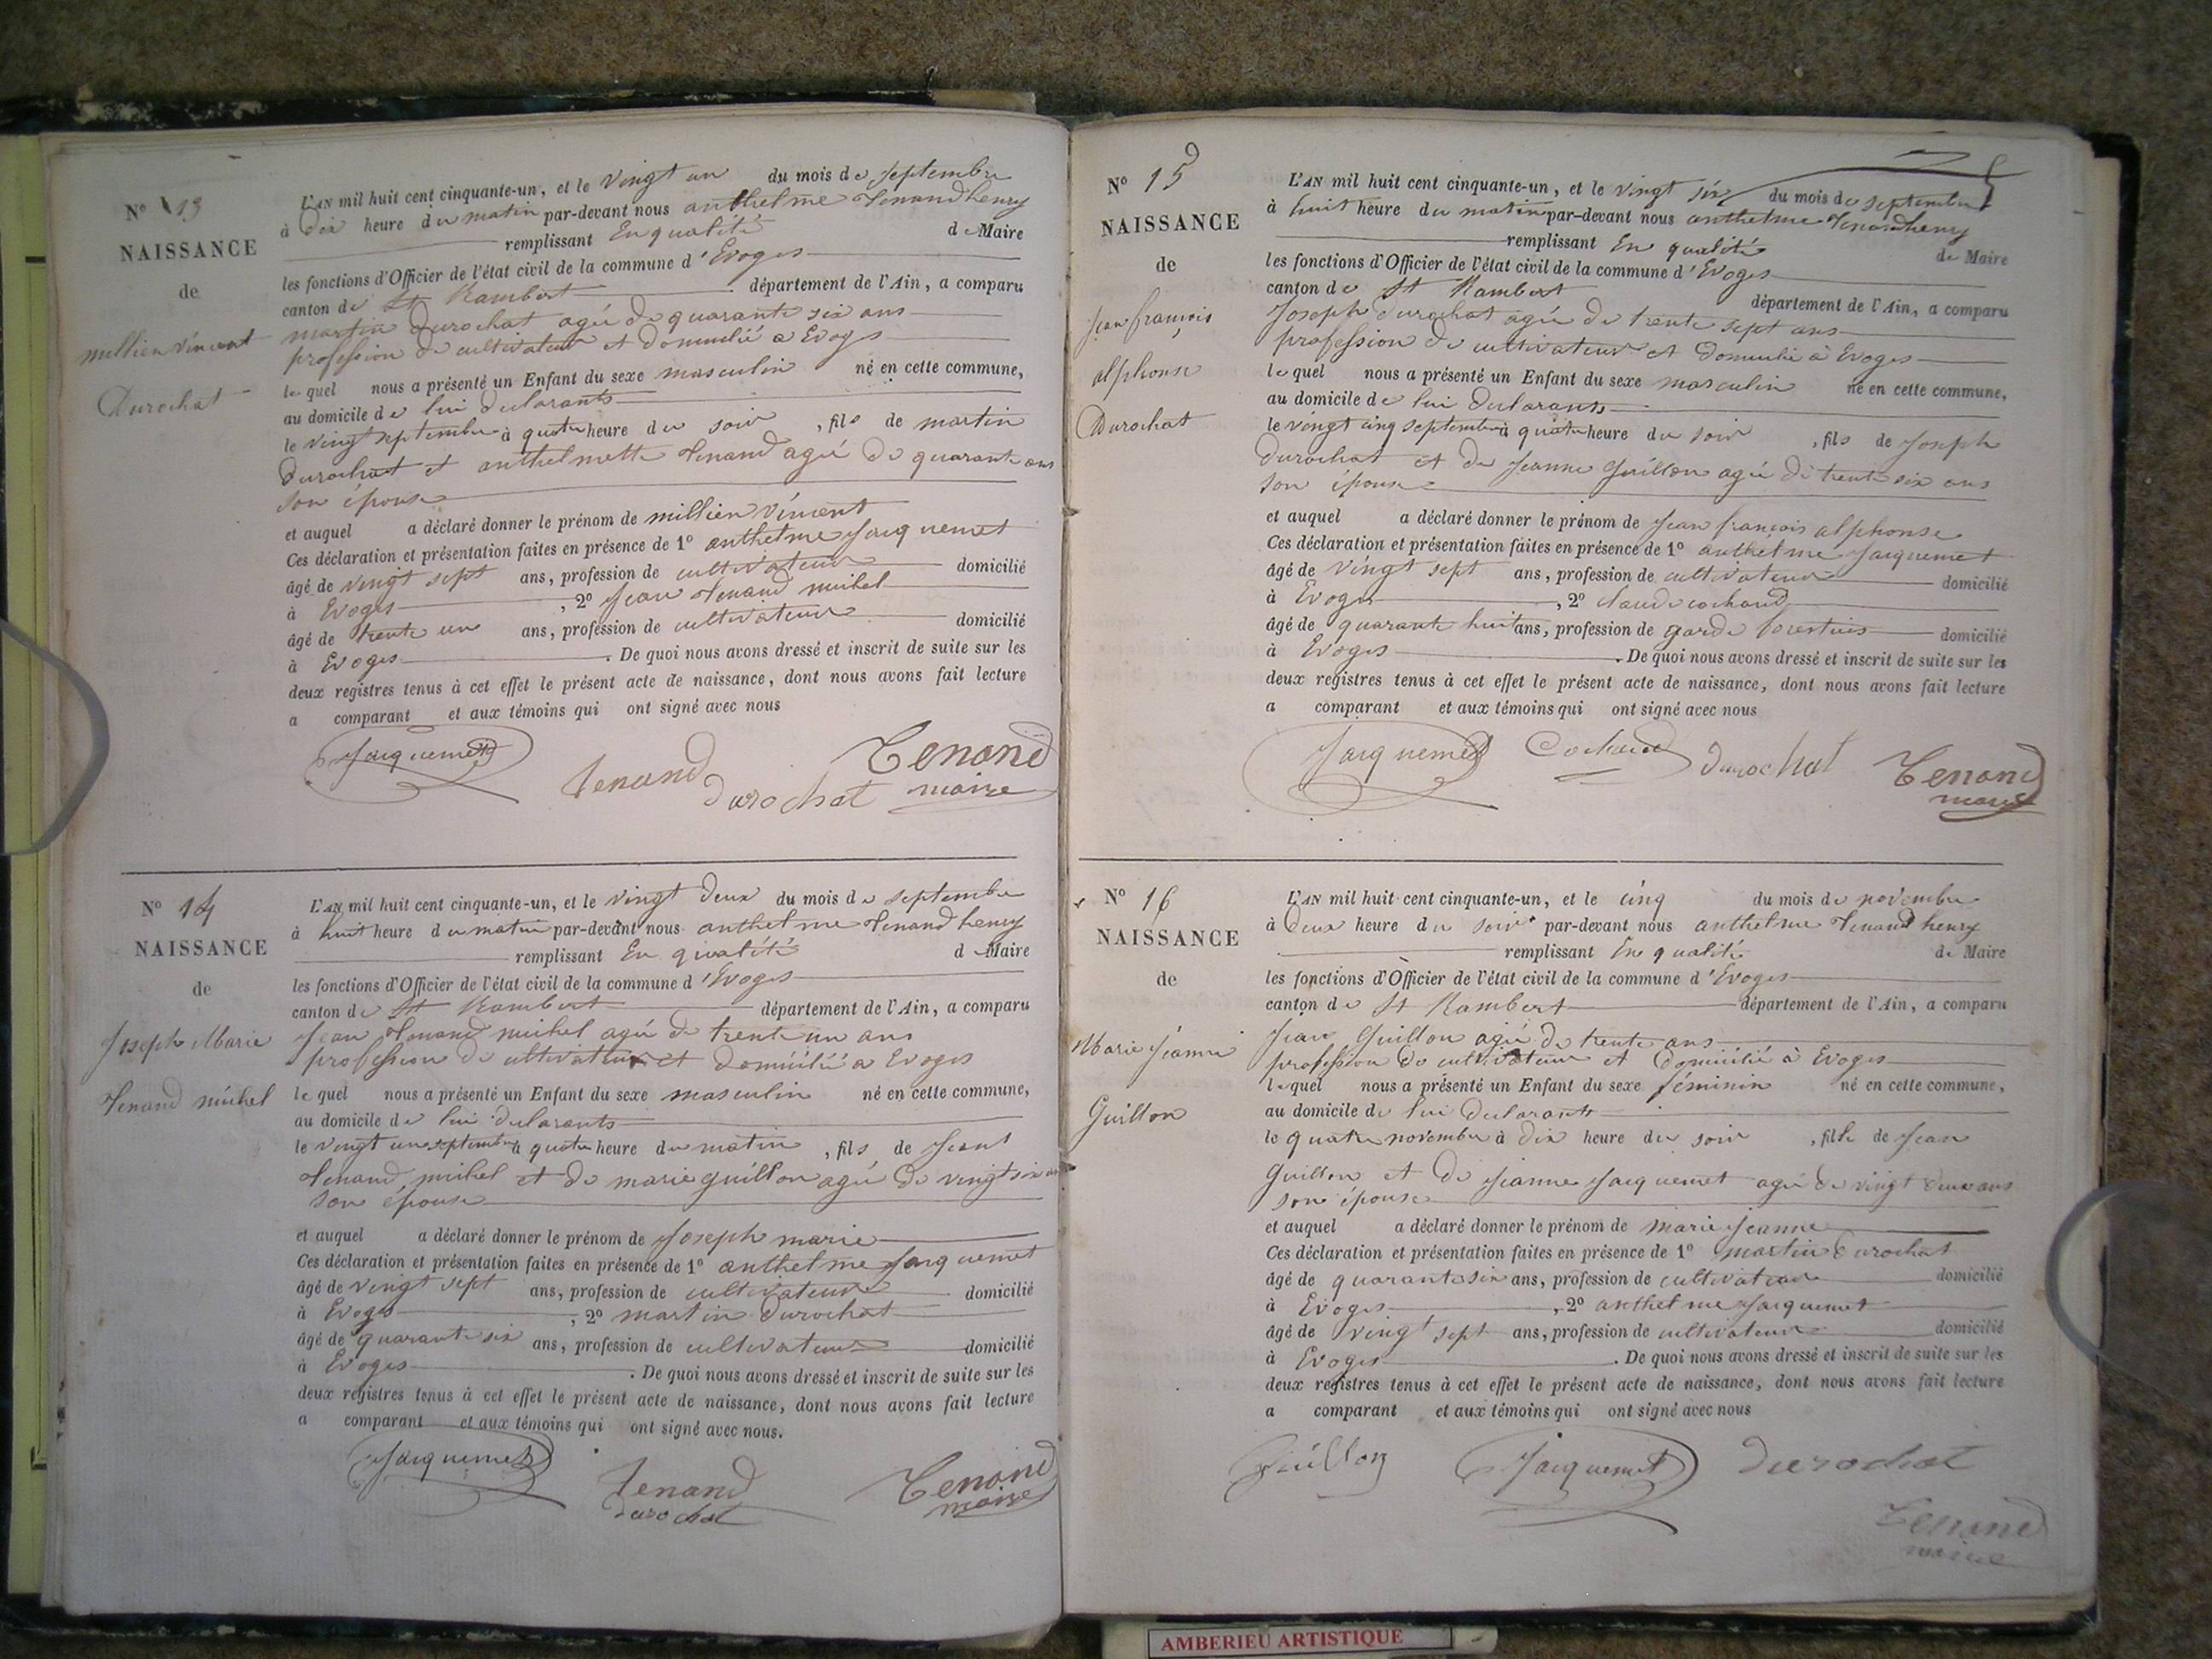 N° 13
NAISSANCE
de
millien vincent
Durochat
L'AN mil huit cent cinquante-un, et le vingt un du mois de septembre
à Dix heure du matin par-devant nous anthelme Tenand henry
remplissant En qualité de Maire
les fonctions d'Officier de l'état civil de la commune d'Evoges
canton de St Rambert département de l'Ain, a comparu
martin Durochat agée de quarante six ans
profession de cultivateur et domicilié a Evoges
lequel nous a présenté un Enfant du sexe masculin né en cette commune,
au domicile de lui declarants
le vingt septembre à quatre heure du soir, fils de martin
Durochat et anthelmette Tenand agée de quarante ans
son épouse
et auquel a déclaré donner le prénom de millien vincent
Ces déclaration et présentation faites en présence de 1° anthelme Jacquemet
âgé de vingt sept ans, profession de cultivateur domicilié
à Evoges, 2° Jean Tenand michel
âgé de trente un ans, profession de cultivateur domicilié
à Evoges. De quoi nous avons dressé et inscrit de suite sur les
deux registres tenus à cet effet le présent acte de naissance, dont nous avons fait lecture
a comparant et aux témoins qui ont signé avec nous
Jacquemet Tenand Durochat Tenand
maire
N° 14
NAISSANCE
de
Joseph Marie
Tenand michel
L'AN mil huit cent cinquante-un, et le vingt deux du mois de septembre
à huit heure du matin par-devant nous anthelme Tenand henry
remplissant En qualité de Maire
les fonctions d'Officier de l'état civil de la commune d'Evoges
canton de St Rambert département de l'Ain, a comparu
Jean Tenand michel agée de trente un ans
profession de cultivateur et domicilié a Evoges
lequel nous a présenté un Enfant du sexe masculin né en cette commune,
au domicile de lui declarants
le vingt un septembre à quatre heure du matin, fils de Jean
Tenand michel et de marie guillon agée de vingt six ans
son épouse
et auquel a déclaré donner le prénom de Joseph marie
Ces déclaration et présentation faites en présence de 1° anthelme Jacquemet
âgé de vingt sept ans, profession de cultivateur domicilié
à Evoges, 2° martin Durochat
âgé de quarante six ans, profession de cultivateur domicilié
à Evoges. De quoi nous avons dressé et inscrit de suite sur les
deux registres tenus à cet effet le présent acte de naissance, dont nous avons fait lecture
a comparant et aux témoins qui ont signé avec nous.
Jacquemet Tenand Tenand
Durochat maire
N° 15
NAISSANCE
de
Jean françois
alphonse
Durochat
L'AN mil huit cent cinquante-un, et le vingt six du mois de septembre
à huit heure du matin par-devant nous anthelme Tenand henry
remplissant En qualité de Maire
les fonctions d'Officier de l'état civil de la commune d'Evoges
canton de St Rambert département de l'Ain, a comparu
Joseph Durochat agée de trente sept ans
profession de cultivateur et domicilié à Evoges
lequel nous a présenté un Enfant du sexe masculin né en cette commune,
au domicile de lui declarants
le vingt cinq septembre à quatre heure du soir, fils de Joseph
Durochat et de Jeanne Guillon agée de trente six ans
son épouse
et auquel a déclaré donner le prénom de Jean françois alphonse
Ces déclaration et présentation faites en présence de 1° anthelme Jacquemet
âgé de vingt sept ans, profession de cultivateur domicilié
à Evoges, 2° claude cochand
âgé de quarante huit ans, profession de garde forestier domicilié
à Evoges. De quoi nous avons dressé et inscrit de suite sur les
deux registres tenus à cet effet le présent acte de naissance, dont nous avons fait lecture
a comparant et aux témoins qui ont signé avec nous
Jacquemet Cochand Durochat Tenand
maire
N° 16
NAISSANCE
de
Marie Jeanne
Guillon
L'AN mil huit cent cinquante-un, et le cinq du mois de novembre
à Deux heure du soir par-devant nous anthelme Tenand henry
remplissant En qualité de Maire
les fonctions d'Officier de l'état civil de la commune d'Evoges
canton de St Rambert département de l'Ain, a comparu
Jean Guillon agée de trente ans
profession de cultivateur et domicilié à Evoges
lequel nous a présenté un Enfant du sexe féminin né en cette commune,
au domicile de lui declarants
le quatre novembre à dix heure du soir, fille de Jean
Guillon et de Jeanne Jacquemet agée de vingt deux ans
son épouse
et auquel a déclaré donner le prénom de marie Jeanne
Ces déclaration et présentation faites en présence de 1° martin Durochat
âgé de quarante six ans, profession de cultivateur domicilié
à Evoges, 2° anthelme Jacquemet
âgé de vingt sept ans, profession de cultivateur domicilié
à Evoges. De quoi nous avons dressé et inscrit de suite sur les
deux registres tenus à cet effet le présent acte de naissance, dont nous avons fait lecture
a comparant et aux témoins qui ont signé avec nous
Guillon Jacquemet Durochat
Tenand
maire
AMBERIEU ARTISTIQUE